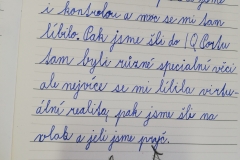 i kontrolou a moc se mi tam
líbilo. Pak jsme šli do IQ Portu
tam byli různé speciální věci
ale nejvíce se mi líbila virtu-
ální realita, pak jsme šli na
vlak a jeli jsme pryč.